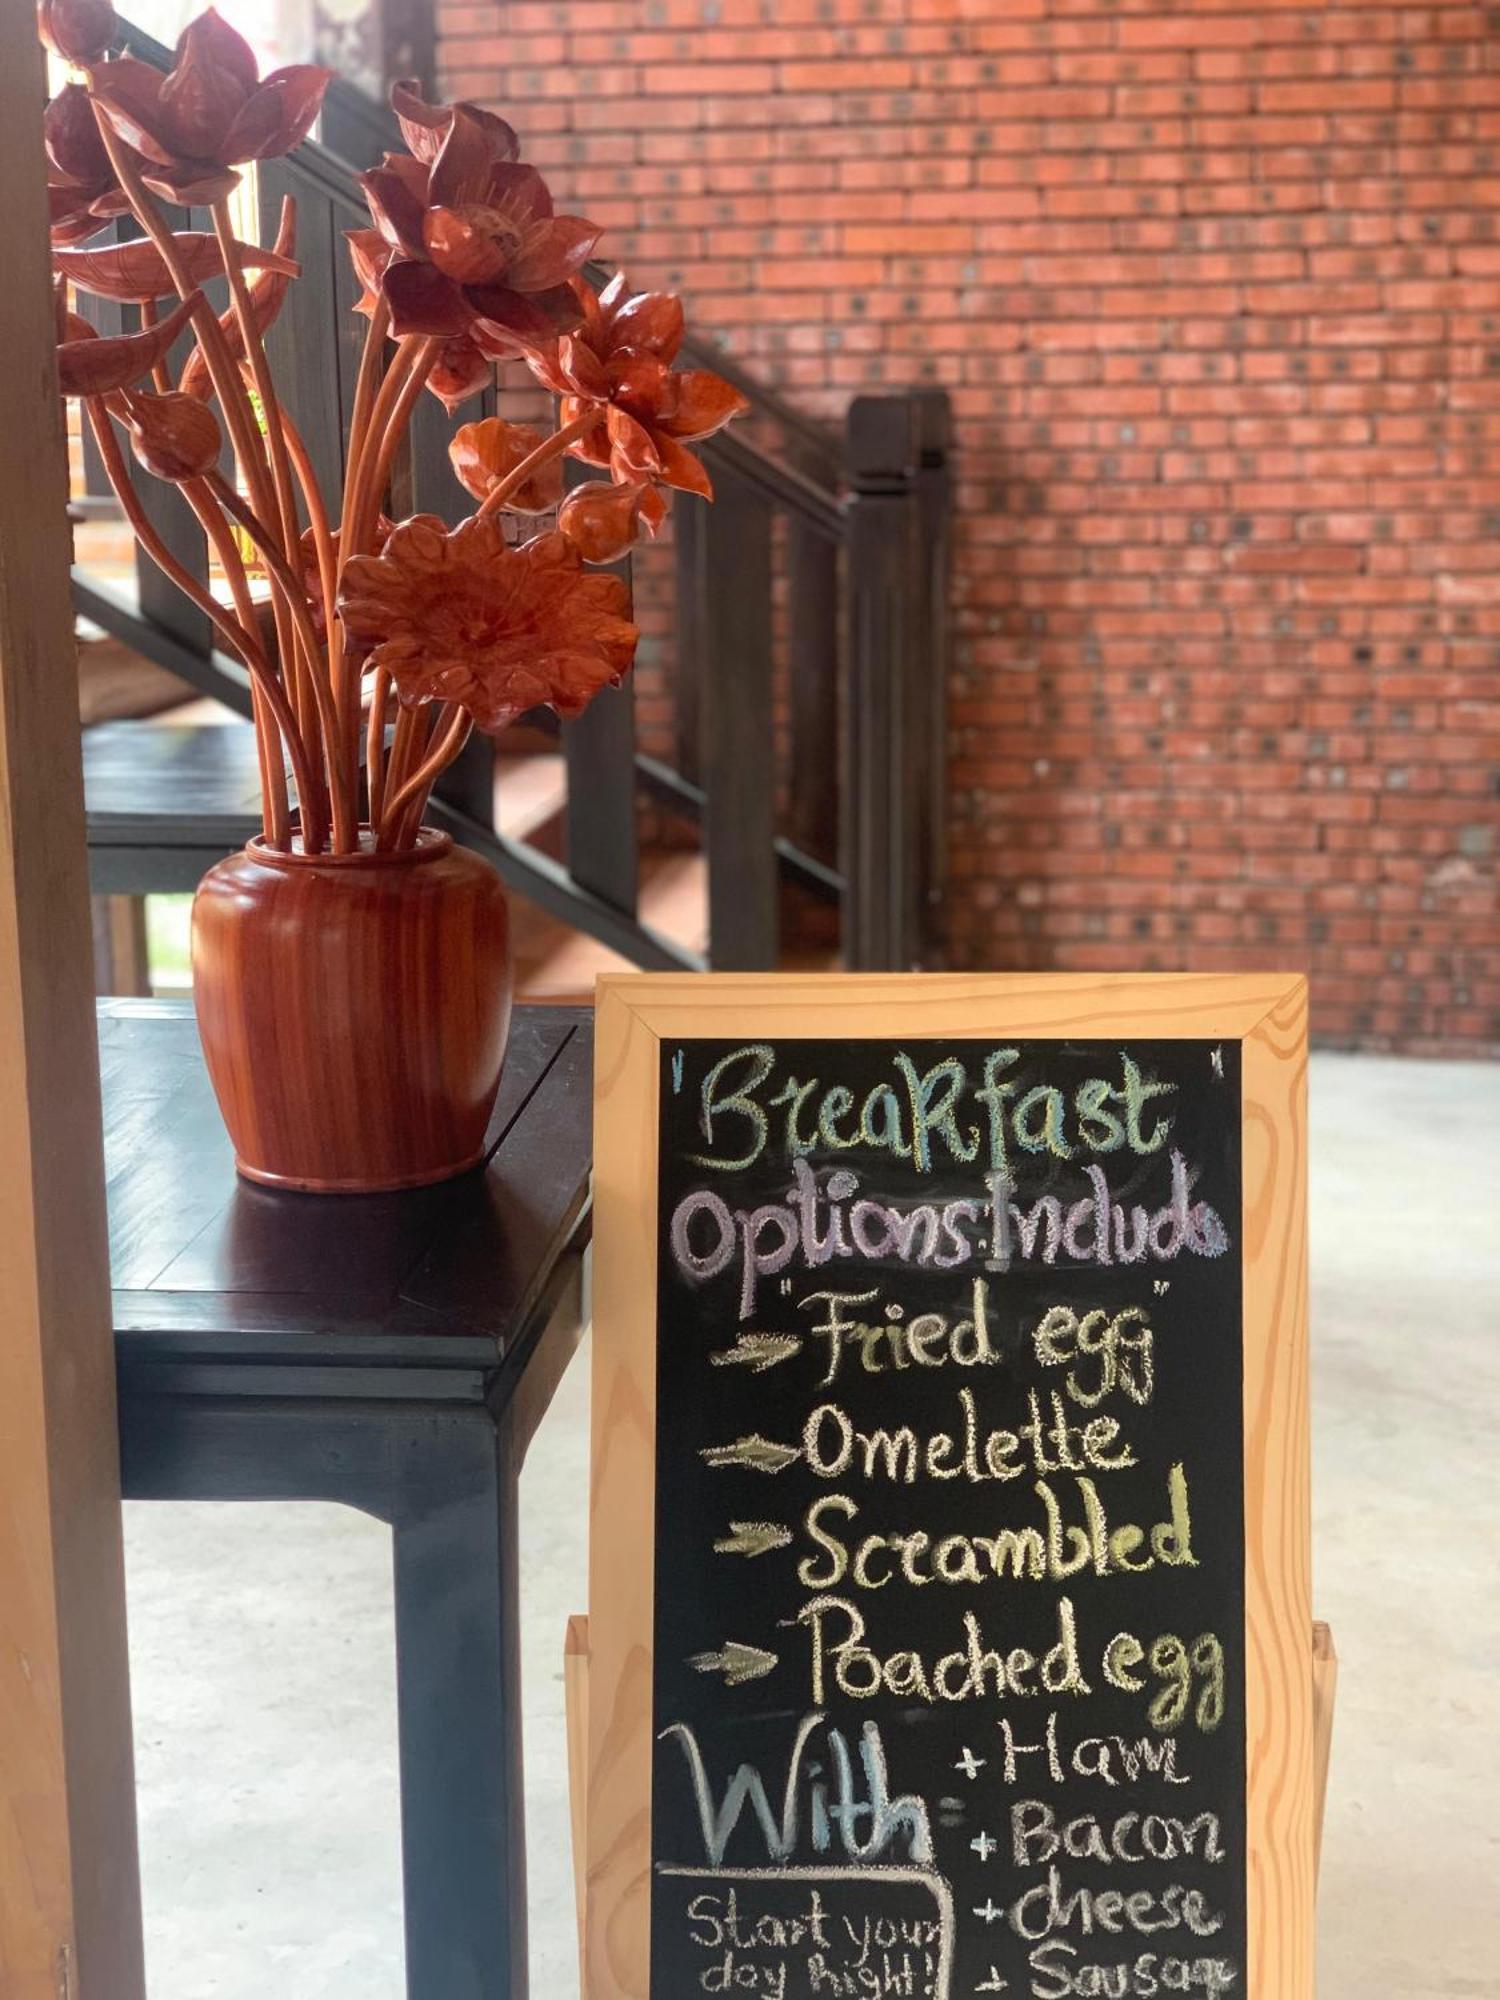 "Breakfast"
Options Include
"Fried egg"
Omelette
Scrambled
Poached egg
With = + Ham
+ Bacon
+ cheese
+ Sausage
Start your
day Right!